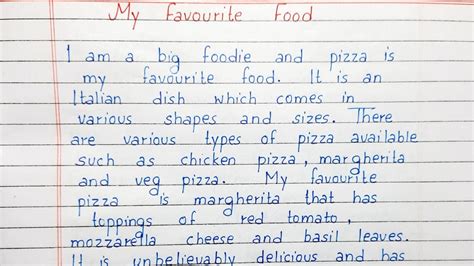 My Favourite Food
I am a big foodie and pizza is
my favourite food. It is an
Italian dish which comes in
various shapes and sizes. There
are various types of pizza available
such as chicken pizza, margherita
and veg pizza. My favourite
pizza is margherita that has
toppings of red tomato,
mozzarella cheese and basil leaves.
It is unbelievably delicious and has